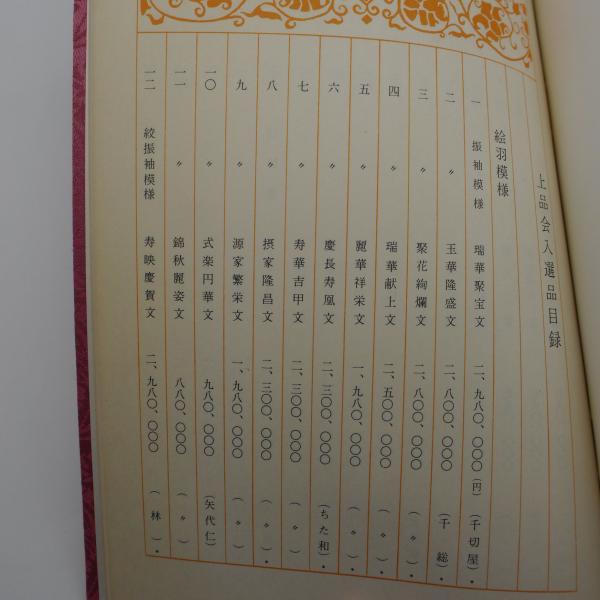 上品会入選品目録
絵羽模様
一 振袖模様 瑞華聚宝文 二、九八〇、〇〇〇(円)(千切屋)・
二 〃 玉華隆盛文 二、八〇〇、〇〇〇 (千総)・
三 〃 聚花絢爛文 二、八〇〇、〇〇〇 (〃)・
四 〃 瑞華献上文 二、五〇〇、〇〇〇 (〃)・
五 〃 麗華祥栄文 一、九八〇、〇〇〇 (〃)・
六 〃 慶長寿凰文 二、三〇〇、〇〇〇 (ちた和)・
七 〃 寿華吉甲文 二、三〇〇、〇〇〇 (〃)
八 〃 摂家隆昌文 二、三〇〇、〇〇〇 (〃)・
九 〃 源家繁栄文 一、九八〇、〇〇〇 (〃)
一〇 〃 式楽円華文 九八〇、〇〇〇 (矢代仁)
一一 〃 錦秋麗姿文 八八〇、〇〇〇 (〃)
一二 絞振袖模様 寿映慶賀文 二、九八〇、〇〇〇 (林)・